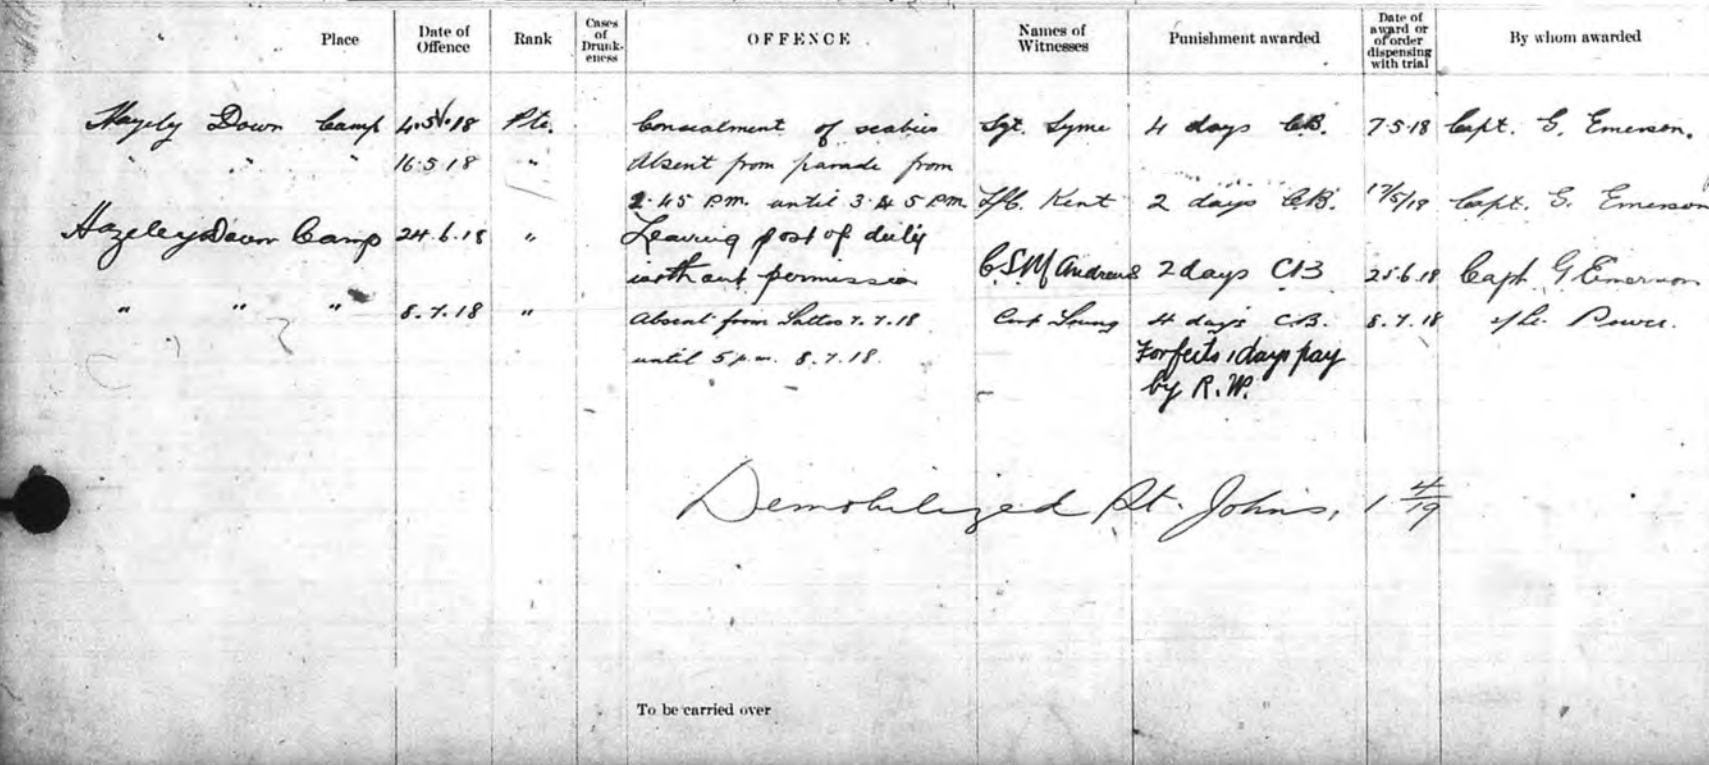 Place Date of Offence Rank Cases of Drunk-eness OFFENCE Names of Witnesses Punishment awarded Date of award or of order dispensing with trial By whom awarded
Hazely Down Camp 4.5.18 Pte. Concealment of scabies Sgt. Syme 4 days CB. 7.5.18 Capt. G. Emerson.
" " " 16.5.18 " Absent from parade from
2.45 P.M. until 3.45 P.M. L/C. Kent 2 days CB. 17/5/18 Capt. G. Emerson
Hazeley Down Camp 24.6.18 " Leaving post of duty
without permission C.S.M Andrews 2 days CB 25.6.18 Capt G Emerson
" " " 8.7.18 " Absent from 7.7.18 Young 4 days C.B. 8.7.18 Power.
until 5 p.m. 8.7.18.
Forfeits 1 days pay
by R.W.
Demobilized St. John's, 1 4/19
To be carried over